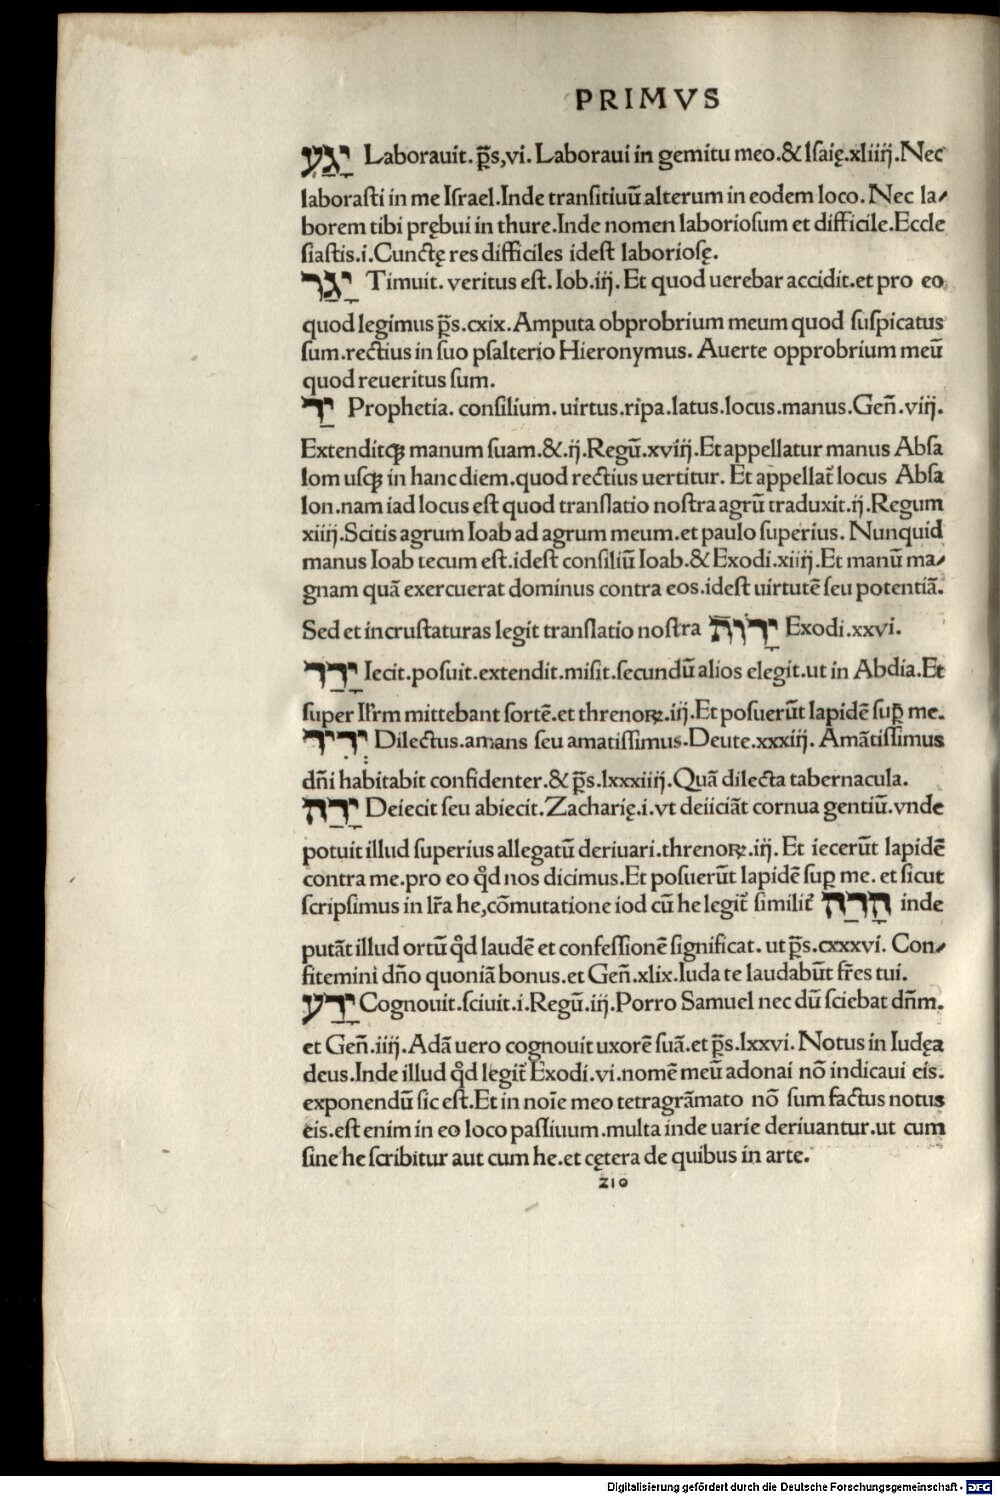 PRIMVS
יָגַע Laborauit. p̄s,vi. Laboraui in gemitu meo.& Iſaię.xliiij.Nec
laboraſti in me Iſrael.Inde tranſitiuū alterum in eodem loco. Nec la/
borem tibi prębui in thure.Inde nomen laborioſum et difficile.Eccle
ſiaſtis.i.Cunctę res difficiles ideſt laborioſę.
יָגַר Timuit. veritus eſt. Iob.iij. Et quod uerebar accidit.et pro eo
quod legimus p̄s.cxix. Amputa obprobrium meum quod ſuſpicatus
ſum.rectius in ſuo pſalterio Hieronymus. Auerte opprobrium meū
quod reueritus ſum.
יַד Prophetia. conſilium. uirtus.ripa.latus.locus.manus.Geñ.viij.
Extenditqꝫ manum ſuam.&.ij.Regū.xviij.Et appellatur manus Abſa
lom uſqꝫ in hanc diem.quod rectius uertitur. Et appellat̃ locus Abſa
lon.nam iad locus eſt quod tranſlatio noſtra agrū traduxit.ij.Regum
xiiij.Scitis agrum Ioab ad agrum meum.et paulo ſuperius. Nunquid
manus Ioab tecum eſt.ideſt conſiliū Ioab.& Exodi.xiiij.Et manū ma/
gnam quā exercuerat dominus contra eos.ideſt uirtutē ſeu potentiā.
Sed et incruſtaturas legit tranſlatio noſtra יָדוֹת Exodi.xxvi.
יָדַד Iecit.poſuit.extendit.miſit.ſecundū alios elegit.ut in Abdia.Et
ſuper Iſr̃m mittebant ſortē.et threnoꝝ.iij.Et poſuerūt lapidē ſup̄ me.
יְדִיד Dilectus.amans ſeu amatiſſimus.Deute.xxxiij. Amātiſſimus
dñi habitabit confidenter.& p̄s.lxxxiiij.Quā dilecta tabernacula.
יָדַה Deiecit ſeu abiecit.Zacharię.i.vt deiiciāt cornua gentiū.vnde
potuit illud ſuperius allegatū deriuari.threnoꝝ.iij. Et iecerūt lapidē
contra me.pro eo qd̄ nos dicimus.Et poſuerūt lapidē ſup̄ me. et ſicut
ſcripſimus in lr̃a he,cōmutatione iod cū he legit̃ ſimilit̃ הָדַה inde
putāt illud ortū qd̄ laudē et confeſſionē ſignificat. ut p̄s.cxxxvi. Con/
fitemini dño quoniā bonus.et Geñ.xlix.Iuda te laudabūt fr̃es tui.
יָדַע Cognouit.ſciuit.i.Regū.iij.Porro Samuel nec dū ſciebat dñm.
et Geñ.iiij.Adā uero cognouit uxorē ſuā.et p̄s.lxxvi. Notus in Iudęa
deus.Inde illud qd̄ legit̃ Exodi.vi.nomē meū adonai nō indicaui eis.
exponendū ſic eſt.Et in noīe meo tetragrāmato nō ſum factus notus
eis.eſt enim in eo loco paſſiuum.multa inde uarie deriuantur.ut cum
ſine he ſcribitur aut cum he.et cętera de quibus in arte.
210
Digitalisierung gefördert durch die Deutsche Forschungsgemeinschaft - DFG